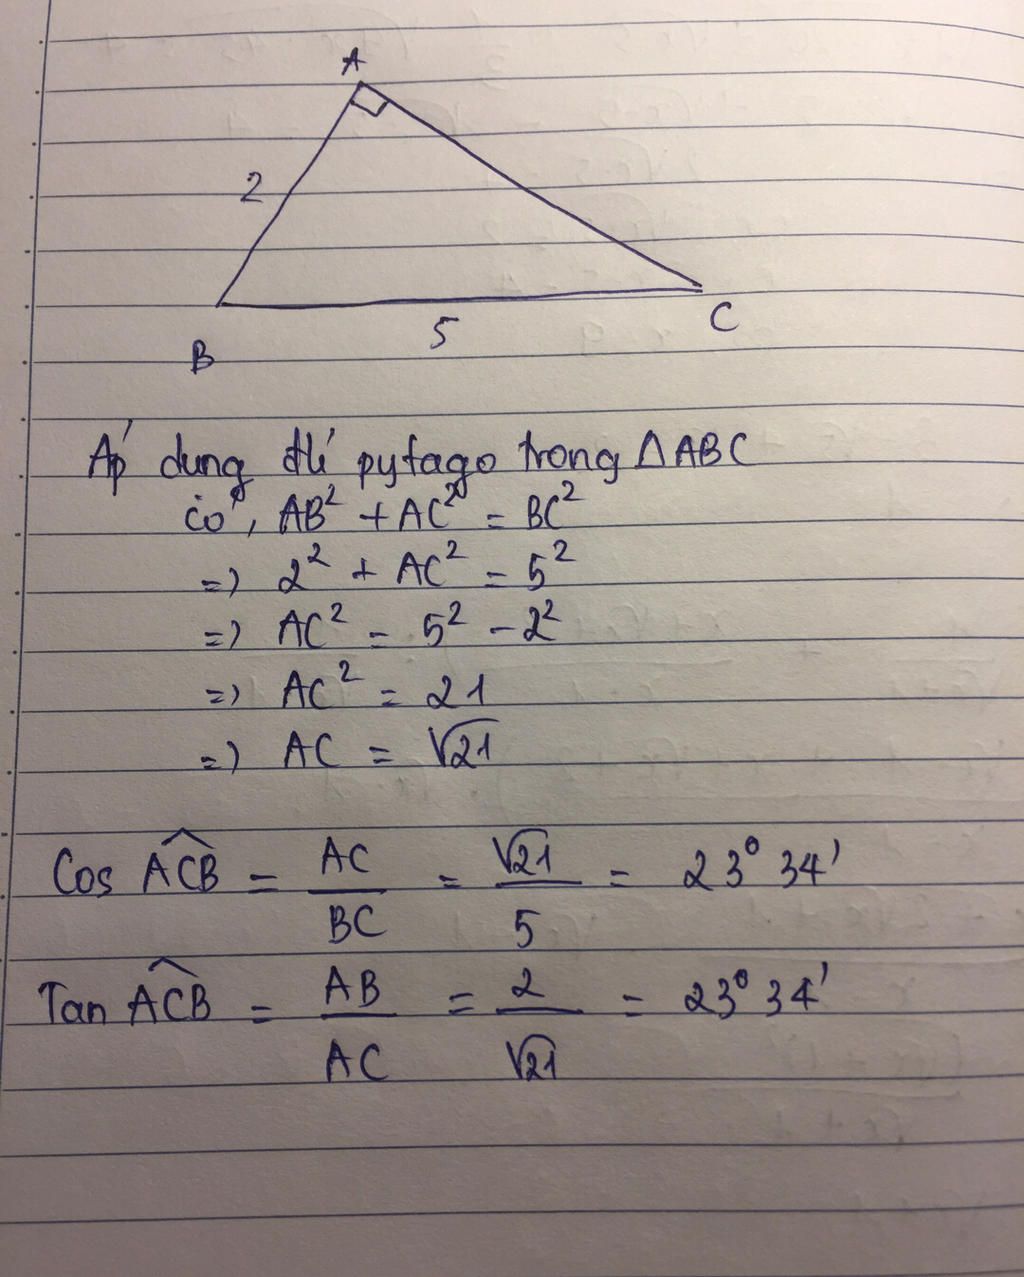 A
2
B
5
C
Áp dung đlí pytago trong ΔABC
có, AB² + AC² = BC²
=) 2² + AC² = 5²
=) AC² = 5² - 2²
=) AC² = 21
=) AC = √21
Cos \widehat{ACB} = AC/BC = √21/5 = 23° 34'
Tan \widehat{ACB} = AB/AC = 2/√21 = 23° 34'